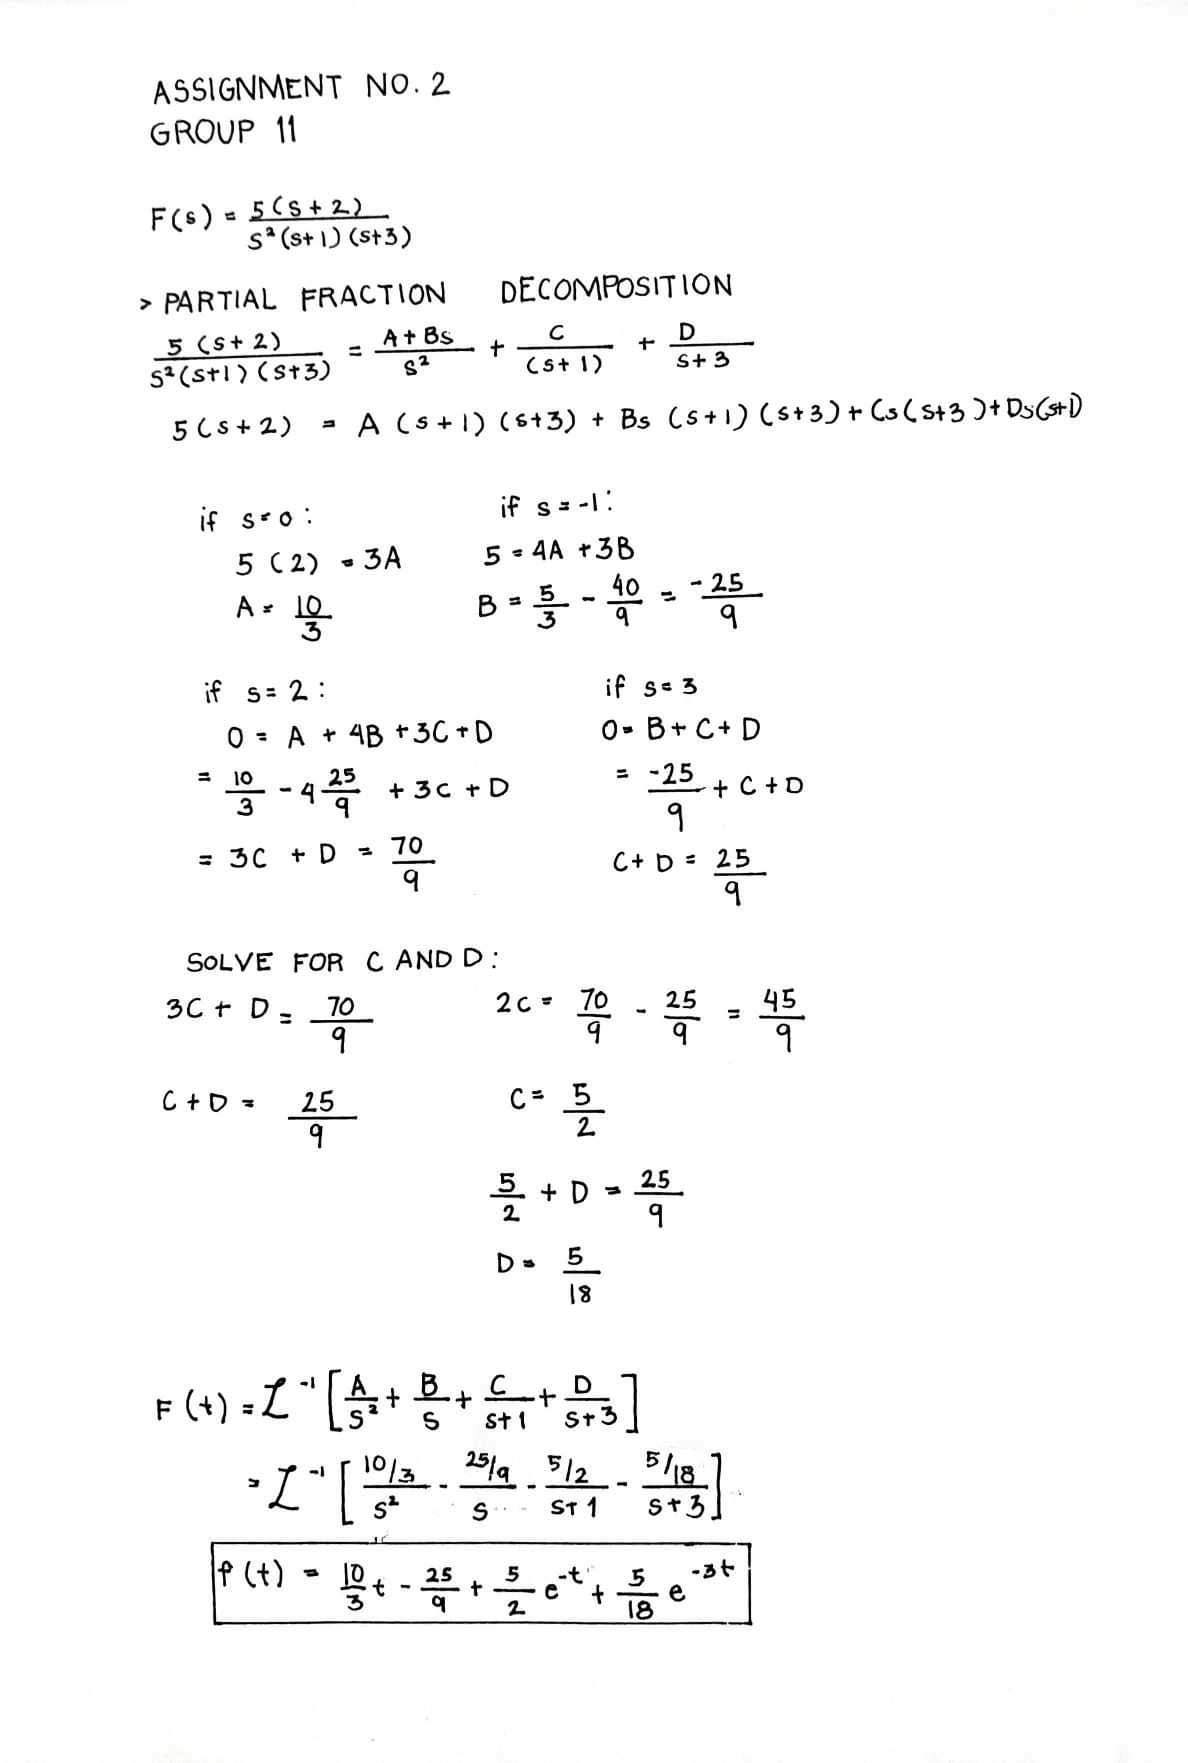 ASSIGNMENT NO. 2
GROUP 11
F(s) = 5(s+2) / s²(s+1)(s+3)
> PARTIAL FRACTION DECOMPOSITION
5(s+2) / s²(s+1)(s+3) = A+Bs / s² + C / (s+1) + D / s+3
5(s+2) = A(s+1)(s+3) + Bs(s+1)(s+3) + Cs(s+3) + Ds(s+1)
if s=0:
5(2) = 3A
A = 10/3
if s=-1:
5 = 4A + 3B
B = 5/3 - 40/9 = -25/9
if s=2:
0 = A + 4B + 3C + D
= 10/3 - 4 25/9 + 3C + D
= 3C + D = 70/9
if s=3
0 = B + C + D
= -25/9 + C + D
C + D = 25/9
SOLVE FOR C AND D:
3C + D = 70/9
C + D = 25/9
2C = 70/9 - 25/9 = 45/9
C = 5/2
5/2 + D = 25/9
D = 5/18
F(t) = ℒ⁻¹[A/s² + B/s + C/s+1 + D/s+3]
= ℒ⁻¹[10/3 / s² - 25/9 / s - 5/2 / s+1 - 5/18 / s+3]
f(t) = 10/3 t - 25/9 + 5/2 e^-t + 5/18 e^-3t